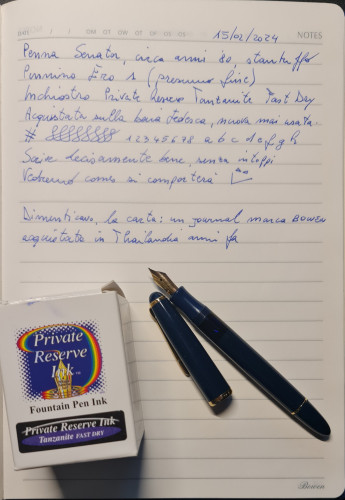 15/02/2024
NOTES
Penna Senator, circa anni 80, stantuffo
Pennino Ero 1 (presumo fine)
Inchiostro Private Reserve Tanzanite Fast Dry
Acquistata sulla baia tedesca, nuova mai usata.
# 12345678 a b c d e f g h
Scrive decisamente bene, senza intoppi
Vedremo come si comporterà
Dimenticavo, la carta: un journal marca BOWEN
acquistato in Thailandia anni fa
Private
Reserve
Ink
Fountain Pen Ink
Private Reserve Ink
Tanzanite FAST DRY
Bowen